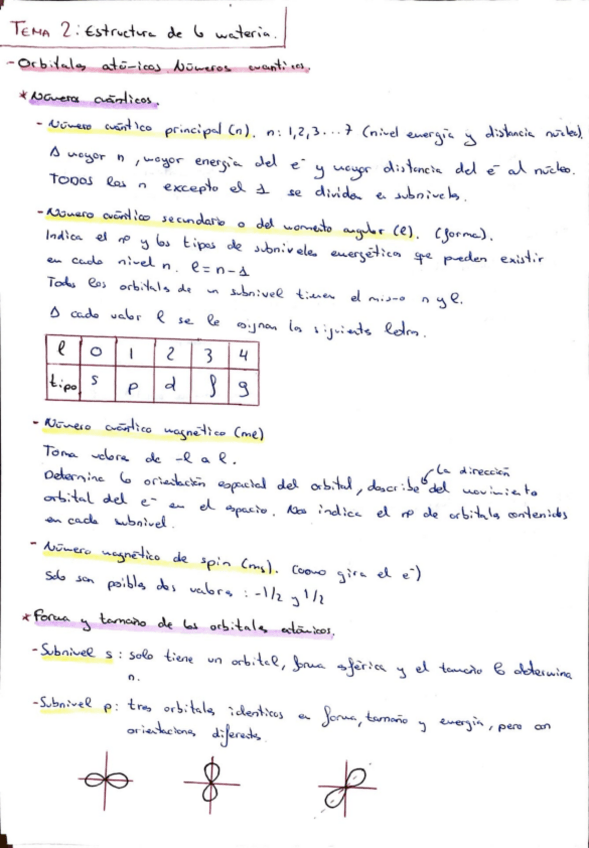 TEMA 2: Estructura de la materia.
- Orbitales atómicos. Números cuánticos.
* Números cuánticos.
- Número cuántico principal (n). n: 1,2,3...7 (nivel energía y distancia núcleo).
A mayor n, mayor energía del e⁻ y mayor distancia del e⁻ al núcleo.
TODOS los n excepto el 1 se dividen en subniveles.
- Número cuántico secundario o del momento angular (l). (forma).
Indica el nº y los tipos de subniveles energéticos que pueden existir
en cada nivel n. l = n - 1
Todos los orbitales de un subnivel tienen el mismo n y l.
A cada valor l se le asignan las siguientes letras.
l 0 1 2 3 4
tipo s p d f g
- Número cuántico magnético (ml)
Toma valores de -l a l.
la dirección
Determina la orientación espacial del orbital, describe del movimiento
orbital del e⁻ en el espacio. Nos indica el nº de orbitales contenidos
en cada subnivel.
- Número magnético de spin (ms). (como gira el e⁻)
Solo son posibles dos valores: -1/2 y 1/2
* Forma y tamaño de los orbitales atómicos.
- Subnivel s: solo tiene un orbital, forma esférica y el tamaño lo determina
n.
- Subnivel p: tres orbitales identicos en forma, tamaño y energía, pero con
orientaciones diferentes.